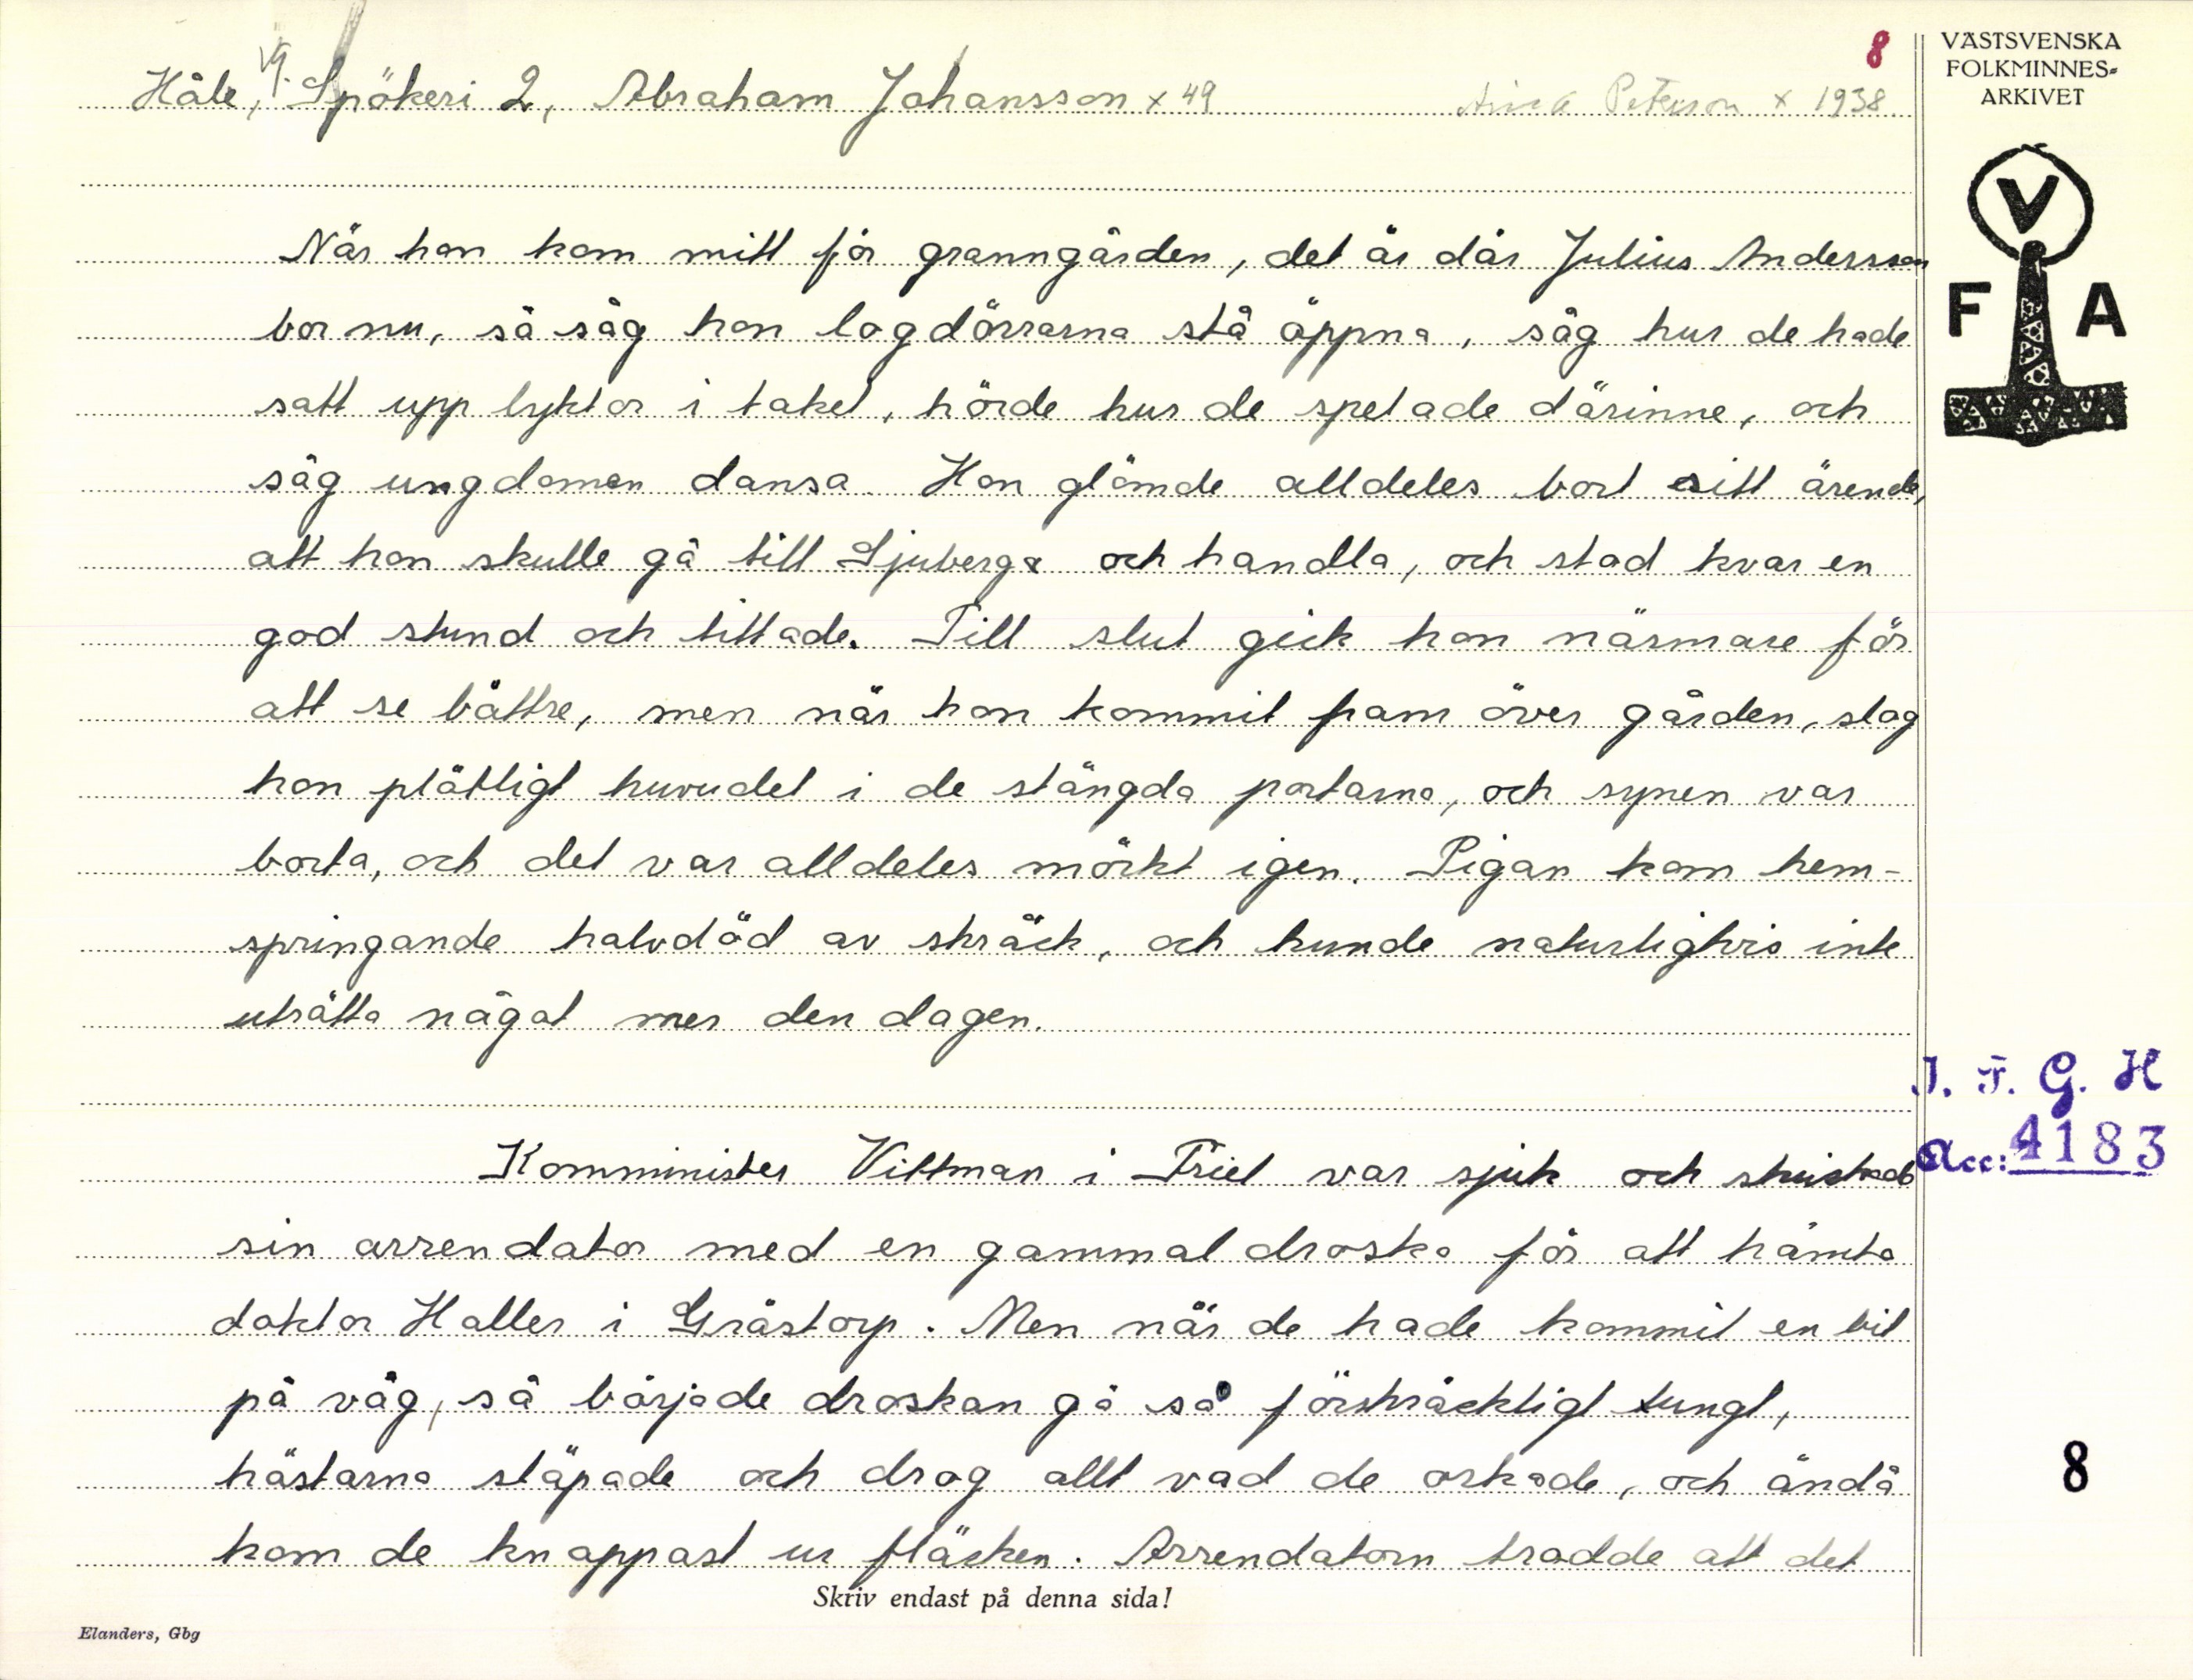 8
VÄSTSVENSKA
FOLKMINNES=
ARKIVET
V
F A
Håle, Vg. Spökeri 2, Abraham Johansson x 49 Peterson x 1938.
När hon kom mitt för granngården, det är där Julius Andersson
bor nu, så såg hon logdörrarna stå öppna, såg hur de hade
satt upp lyktor i taket, hörde hur de spelade därinne, och
såg ungdomen dansa. Hon glömde alldeles bort sitt ärende,
att hon skulle gå till Sjuberga och handla, och stod kvar en
god stund och tittade. Till slut gick hon närmare för
att se bättre, men när hon kommit fram över gården, slog
hon plötligt huvudet i de stängda portarna, och synen var
borta, och det var alldeles mörkt igen. Pigan kom hem-
springande halvdöd av skräck, och kunde naturligtvis inte
uträtta något mer den dagen.
Komminister Vittman i Friel var sjuk och skickade
sin arrendator med en gammal droska för att hämta
doktor Haller i Grästorp. Men när de hade kommit en bit
på väg, så började droskan gå så förskräckligt tungt,
hästarna släpade och drog allt vad de orkade, och ändå
kom de knappast ur fläcken. Arrendatorn trodde att det
J. F. G. H
Acc: 4183
8
Skriv endast på denna sida!
Elanders, Gbg